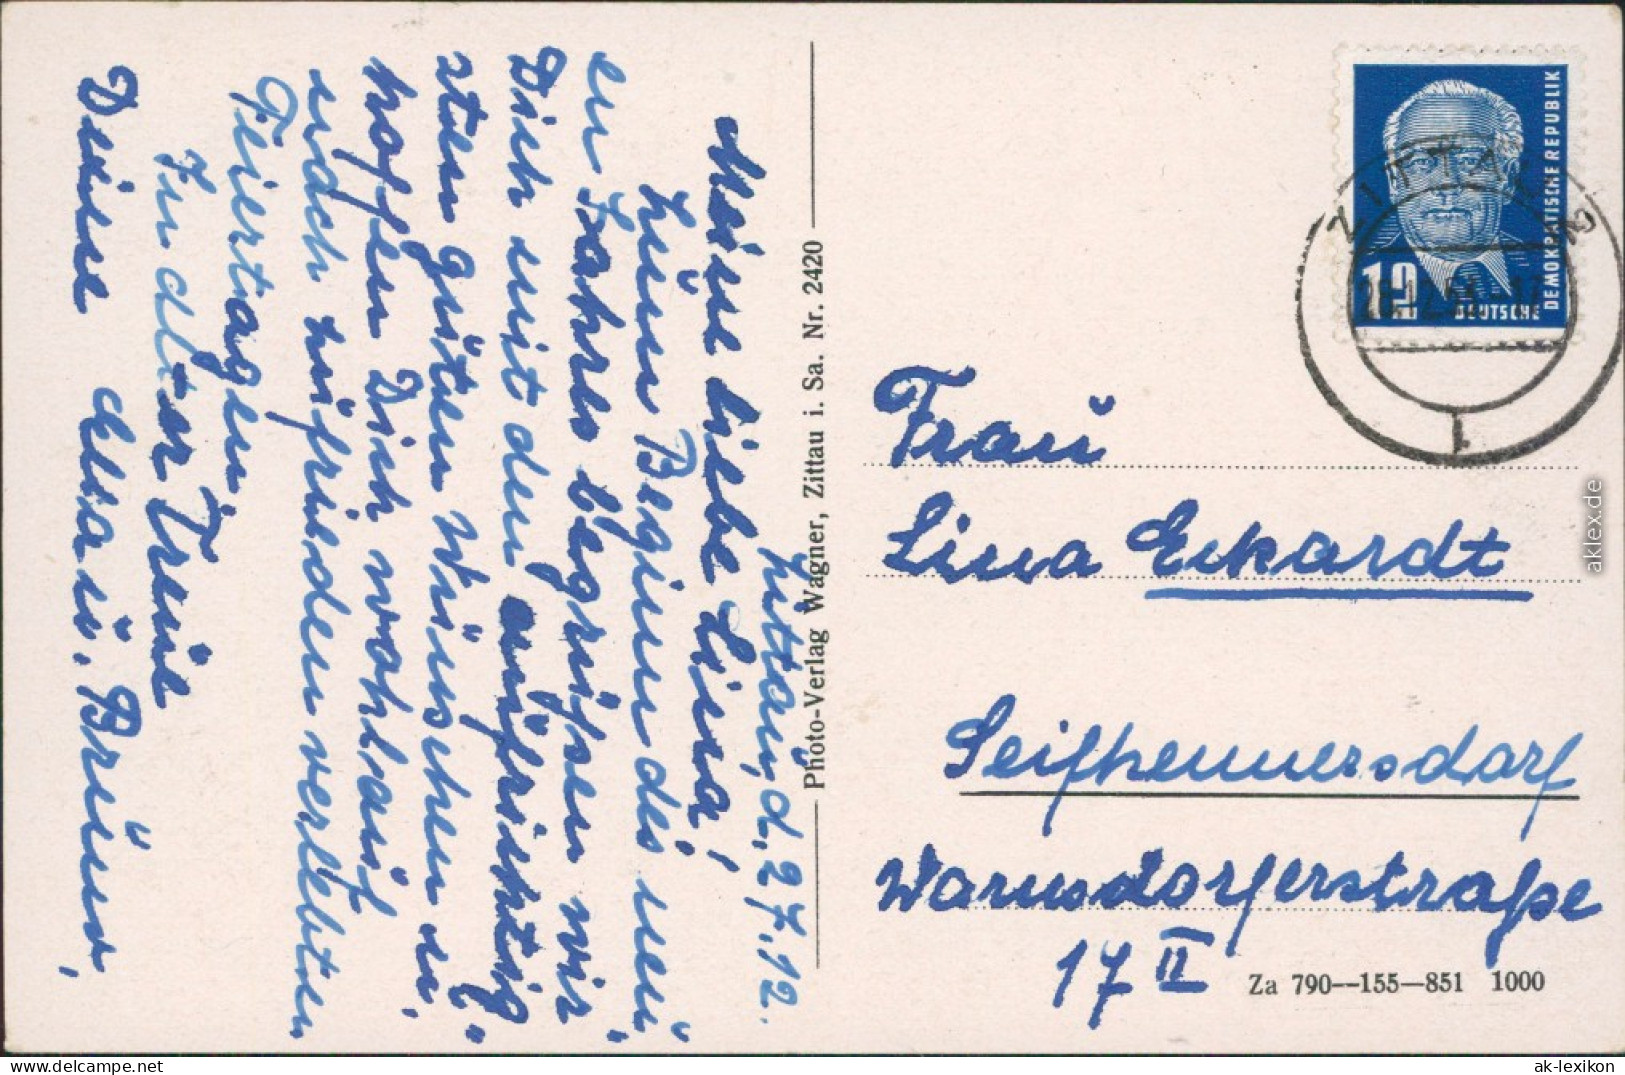 Zittau, d. 27. 12.
Meine liebe Lina!
Zum Beginn des neu-
en Jahres begrüßen wir
Dich mit den aufrichtig-
sten guten Wünschen u.
hoffen Dich wohlauf
nach zufrieden verlebten
Feiertagen
In alter Treue
Deine Elsa u. Bruno,
Photo-Verlag Wagner, Zittau i. Sa. Nr. 2420
DEUTSCHE
DEMOKRATISCHE REPUBLIK
12
ZITTAU 2
Frau
Lina Eckardt
Seifhennersdorf
Warnsdorferstraße
17 II
Za 790--155—851 1000
aklex.de
ak-lexikon